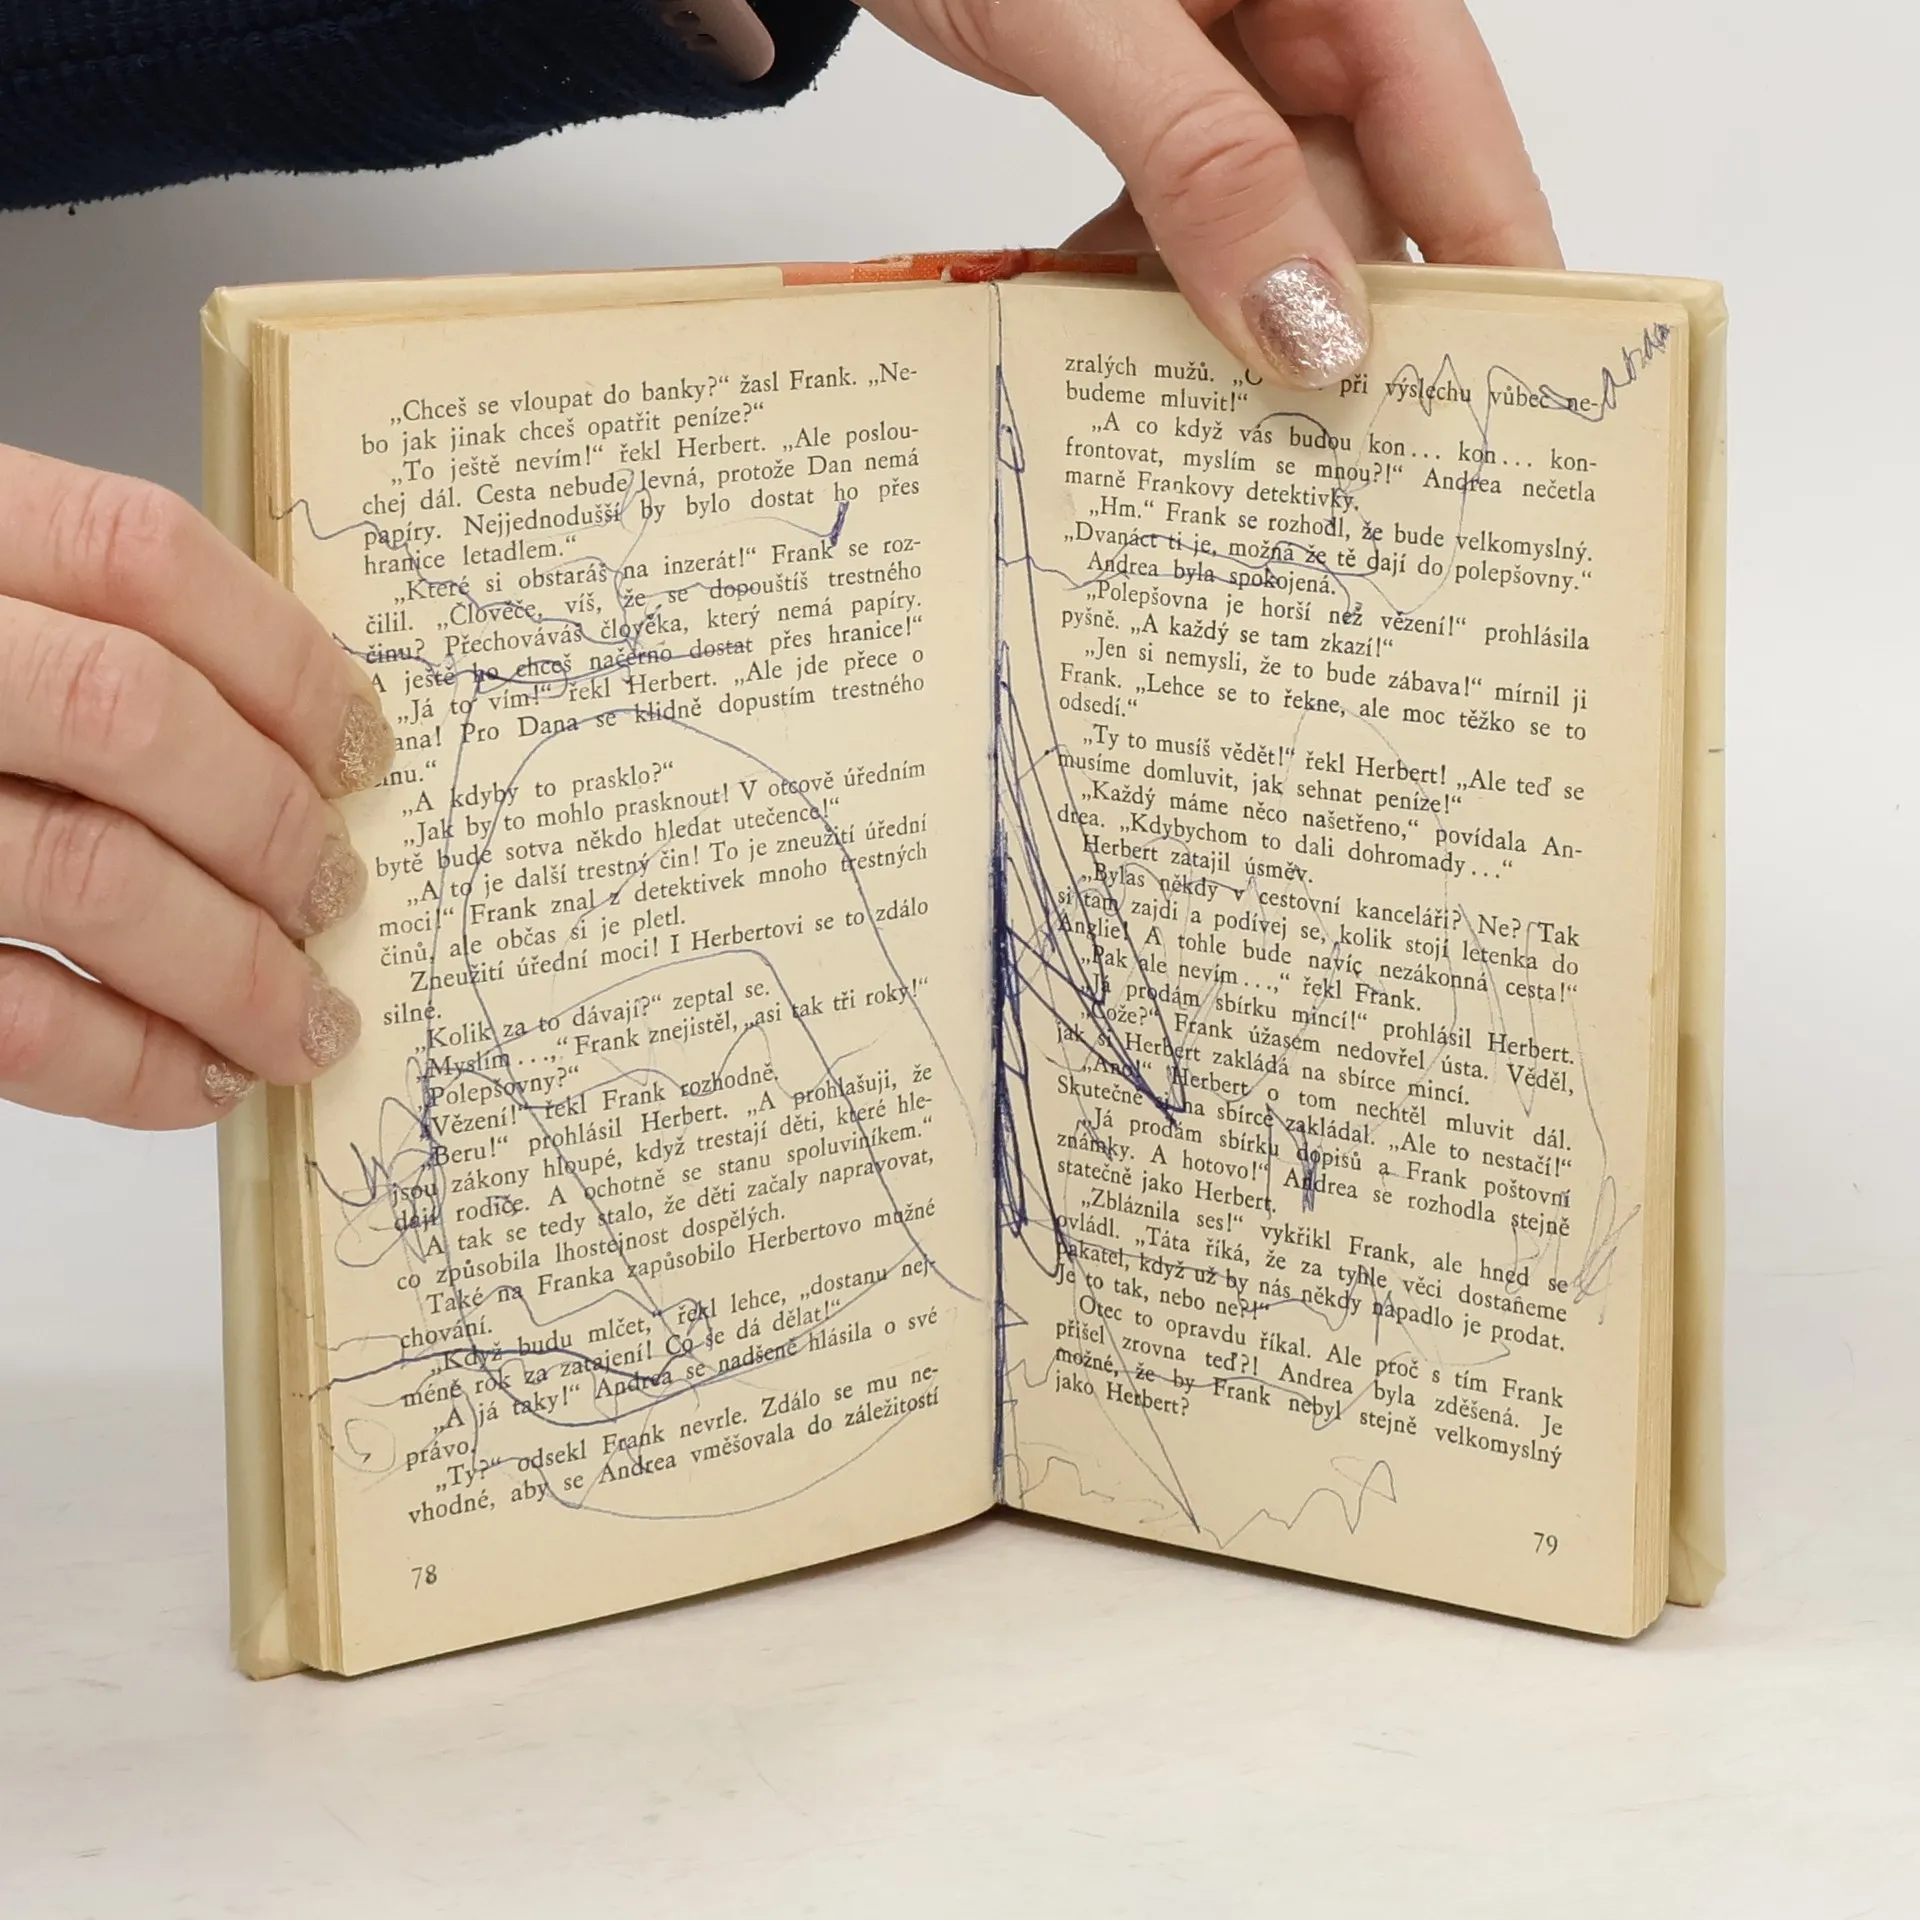 „Chceš se vloupat do banky?“ žasl Frank. „Ne-
bo jak jinak chceš opatřit peníze?“
„To ještě nevím!“ řekl Herbert. „Ale poslou-
chej dál. Cesta nebude levná, protože Dan nemá
papíry. Nejjednodušší by bylo dostat ho přes
hranice letadlem.“
„Které si obstaráš na inzerát!“ Frank se roz-
čilil. „Člověče, víš, že se dopouštíš trestného
činu? Přechováváš člověka, který nemá papíry.
A ještě ho chceš načerno dostat přes hranice!“
„Já to vím!“ řekl Herbert. „Ale jde přece o
ana! Pro Dana se klidně dopustím trestného
činu.“
„A kdyby to prasklo?“
„Jak by to mohlo prasknout! V otcově úředním
bytě bude sotva někdo hledat utečence!“
„A to je další trestný čin! To je zneužití úřední
moci!“ Frank znal z detektivek mnoho trestných
činů, ale občas si je pletl.
Zneužití úřední moci! I Herbertovi se to zdálo
silné.
„Kolik za to dávají?“ zeptal se.
„Myslím...,“ Frank znejistěl, „asi tak tři roky!“
„Polepšovny?“
„Vězení!“ řekl Frank rozhodně.
„Beru!“ prohlásil Herbert. „A prohlašuji, že
jsou zákony hloupé, když trestají děti, které hle-
dají rodiče. A ochotně se stanu spoluviníkem.“
A tak se tedy stalo, že děti začaly napravovat,
co způsobila lhostejnost dospělých.
Také na Franka zapůsobilo Herbertovo mužné
chování.
„Když budu mlčet,“ řekl lehce, „dostanu nej-
méně rok za zatajení! Co se dá dělat!“
„A já taky!“ Andrea se nadšeně hlásila o své
právo.
„Ty?“ odsekl Frank nevrle. Zdálo se mu ne-
vhodné, aby se Andrea vměšovala do záležitostí
78
zralých mužů. při výslechu vůbec ne-
budeme mluvit!“
„A co když vás budou kon... kon... kon-
frontovat, myslím se mnou?!“ Andrea nečetla
marně Frankovy detektivky.
„Hm.“ Frank se rozhodl, že bude velkomyslný.
„Dvanáct ti je, možná že tě dají do polepšovny.“
Andrea byla spokojená.
„Polepšovna je horší než vězení!“ prohlásila
pyšně. „A každý se tam zkazí!“
„Jen si nemysli, že to bude zábava!“ mírnil ji
Frank. „Lehce se to řekne, ale moc těžko se to
odsedí.“
„Ty to musíš vědět!“ řekl Herbert! „Ale teď se
musíme domluvit, jak sehnat peníze!“
„Každý máme něco našetřeno,“ povídala An-
drea. „Kdybychom to dali dohromady...“
Herbert zatajil úsměv.
„Bylas někdy v cestovní kanceláři? Ne? Tak
si tam zajdi a podívej se, kolik stojí letenka do
Anglie! A tohle bude navíc nezákonná cesta!“
„Pak ale nevím...,“ řekl Frank.
„Já prodám sbírku mincí!“ prohlásil Herbert.
„Cože?“ Frank úžasem nedovřel ústa. Věděl,
jak si Herbert zakládá na sbírce mincí.
„Ano!“ Herbert o tom nechtěl mluvit dál.
Skutečně si na sbírce zakládal. „Ale to nestačí!“
„Já prodám sbírku dopisů a Frank poštovní
známky. A hotovo!“ Andrea se rozhodla stejně
statečně jako Herbert.
„Zbláznila ses!“ vykřikl Frank, ale hned se
ovládl. „Táta říká, že za tyhle věci dostaneme
pakatel, když už by nás někdy nápadlo je prodat.
Je to tak, nebo ne?!“
Otec to opravdu říkal. Ale proč s tím Frank
přišel zrovna teď?! Andrea byla zděšená. Je
možné, že by Frank nebyl stejně velkomyslný
jako Herbert?
79